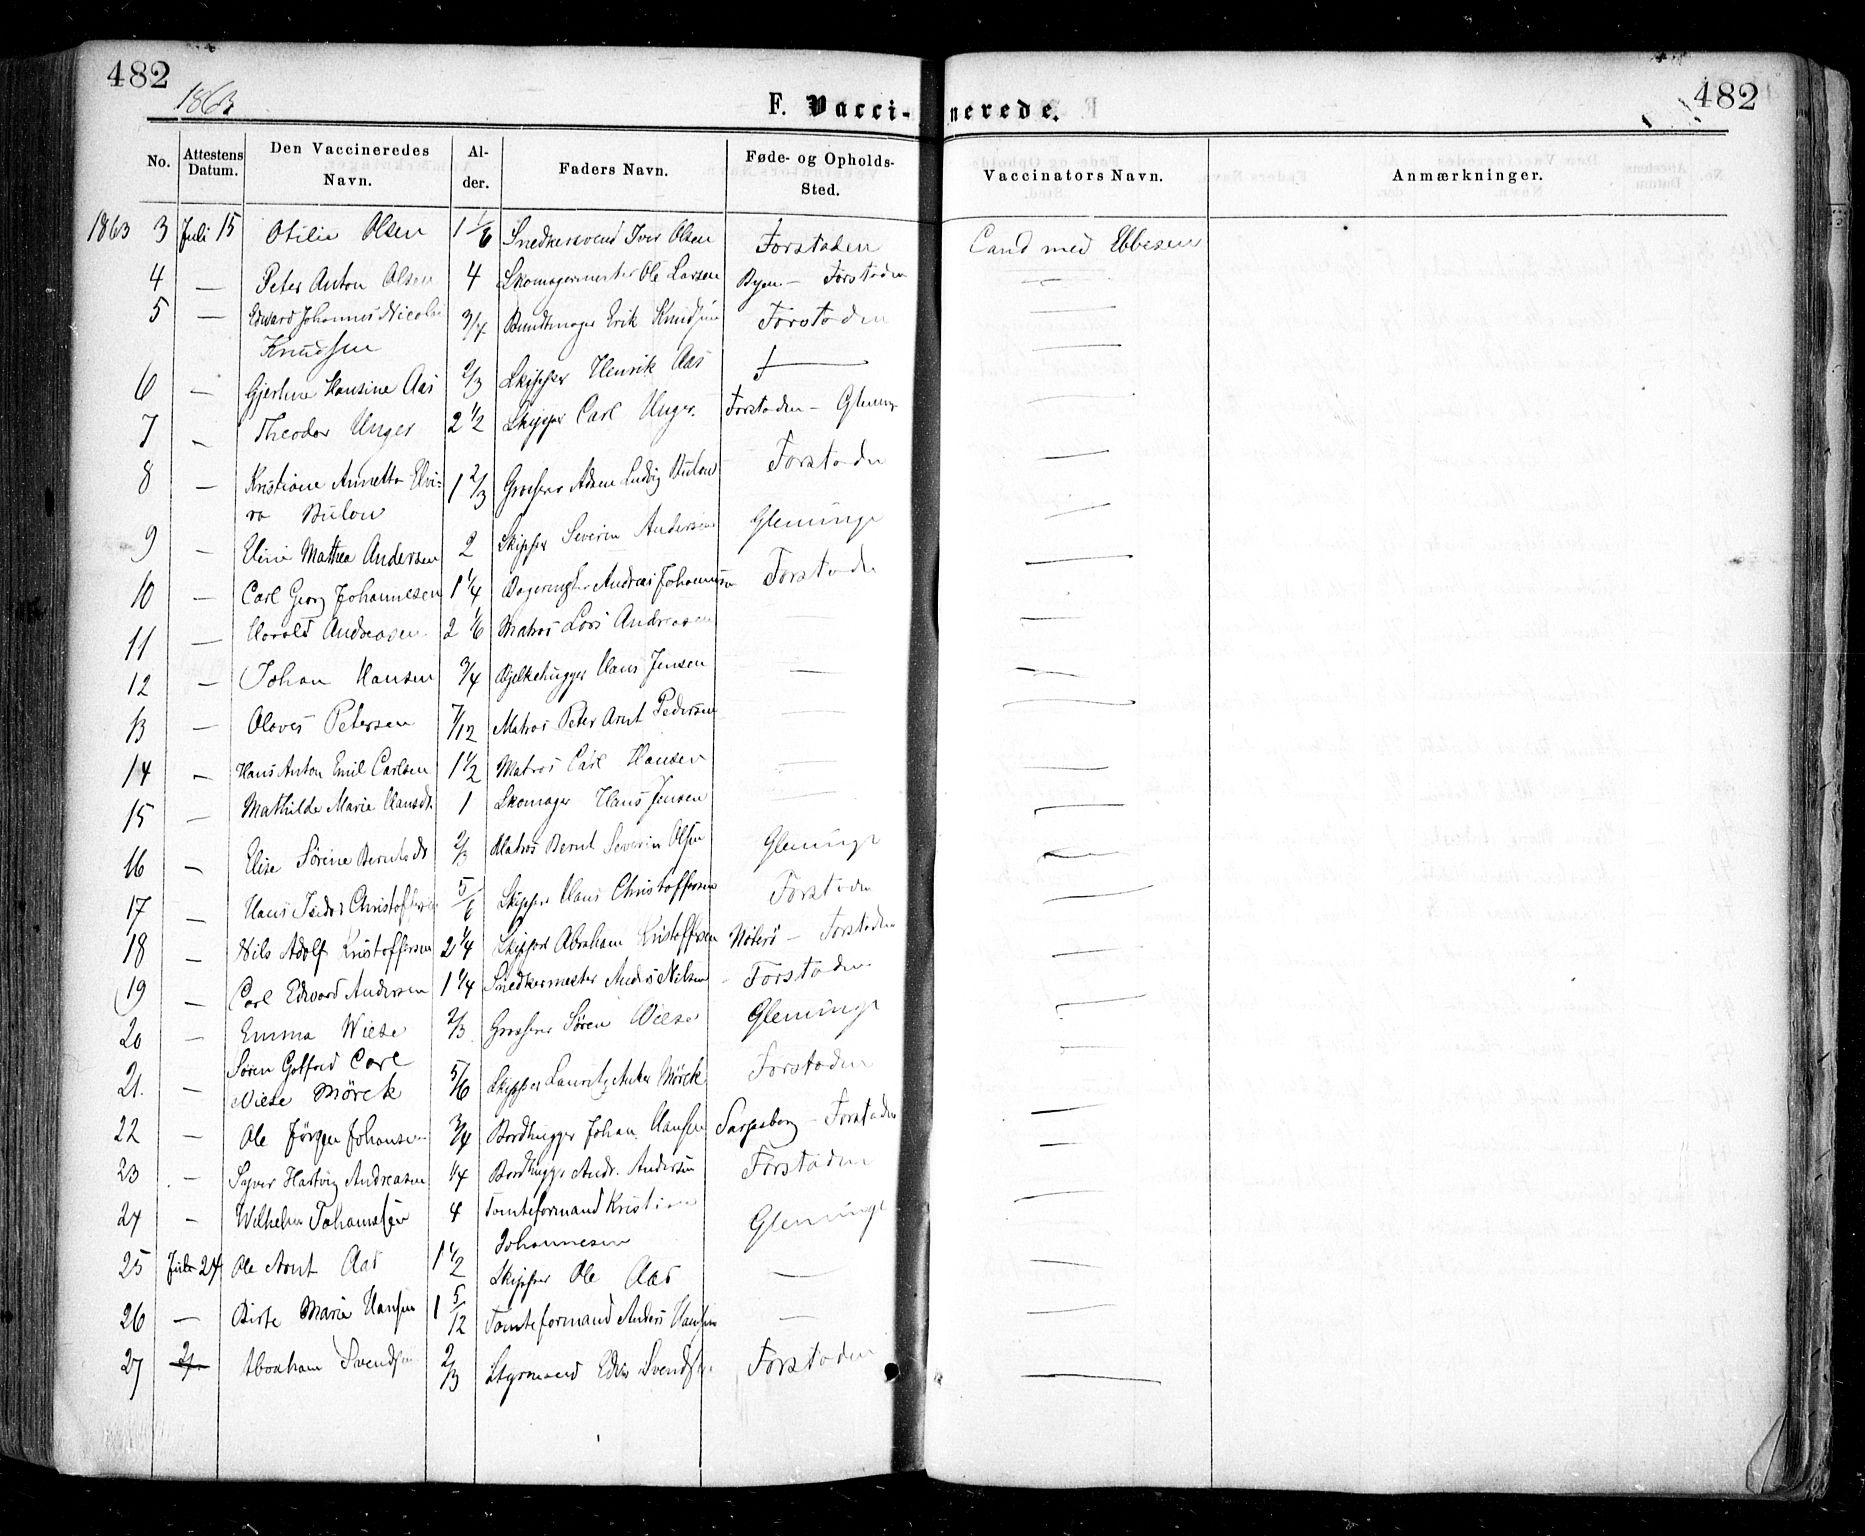 482
1863
F. Vacci-nerede.
482
No. Attestens Datum. Den Vaccineredes Navn. Al-der. Faders Navn. Føde- og Opholds-Sted. Vaccinators Navn. Anmærkninger.
1863 3 Juli 15 Otilie Olsen 1 1/6 Snedkersvend Iver Olsen Forstaden Cand med Ebbesen
4 — Peter Anton Olsen 4 Skomagermester Ole Larsen Byen — Forstaden —
5 — Edward Johannes Nicolai 3/4 Bundtmager Erik Knudsen Forstaden —
Knudsen
6 — Gjertine Hansine Aas 2/3 Skipper Henrik Aas —
7 — Theodor Unger 2 1/2 Skipper Carl Unger. Forstaden — Glemmge —
8 — Kristiane Annette Elvi- 1 2/3 Grosserer Adam Ludvig Bulow Forstaden —
ra Bulow
9 — Eline Mathea Andersen 2 Skipper Severin Andersen Glemminge —
10 — Carl Georg Johannesen 1 1/4 Andreas Johannesen Forstaden —
11 — Harald Andreasen 2 1/6 Matros Lars Andreasen — —
12 — Johan Hansen 3/4 Bjelkehugger Hans Jensen — —
13 — Olaves Petersen 7/12 Matros Peter Arnt Pedersen — —
14 — Hans Anton Emil Carlsen 1 1/2 Matros Carl Hansen — —
15 — Mathilde Marie Hansdr 1 Skomager Hans Jensen — —
16 — Elise Sørine Berntsdr 2/3 Matros Bernt Severin Olsen Glemminge —
17 — Hans Isidor Christoffersen 5/6 Skipper Hans Christoffersen Forstaden —
18 — Nils Adolf Kristoffersen 2 1/4 Skipper Abraham Kristoffersen Nøterø — Forstaden —
19 — Carl Edvard Andersen 1 1/4 Snedkermester Anders Nilsen Forstaden —
20 — Emma Wiese 2/3 Grosserer Søren Wiese Glemminge —
Søren Gotfred Carl
21. — Wiese Mörck 5/6 Skipper Lauritz Anker Mörck Forstaden —
22 — Ole Jörgen Johansen 3/4 Bordhugger Johan Hansen Sarpsborg — Forstaden —
23 — Syver Hartvig Andreasen 1/4 Bordhugger Andr. Andersen Forstaden —
24 — Wilhelm Johannesen 4 Tomteformand Kristian Glemminge —
Johannesen
25 Juli 24 Ole Arnt Aas 1 1/2 Skipper Ole Aas — —
26 — Birte Marie Hansen 1 5/12 Tomteformand Anders Hansen — —
27 Abraham Svendsen 2/3 Styrmand Svendsen Forstaden —